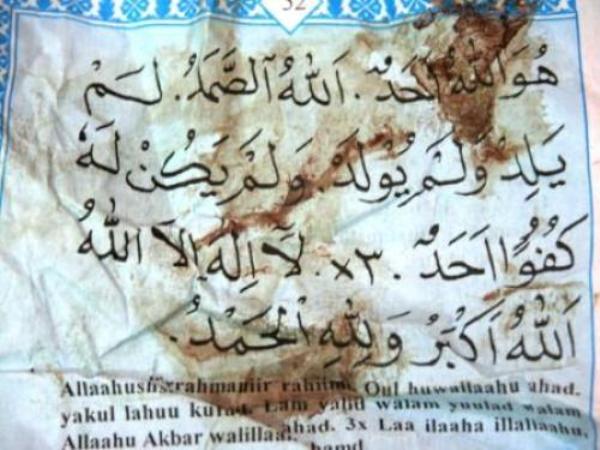 52
هُوَ اللهُ أَحَدٌ . اَللهُ الصَّمَدُ . لَمْ
يَلِدْ وَلَمْ يُوْلَدْ . وَلَمْ يَكُنْ لَهُ
كُفُوًا اَحَدٌ . ×٣ . لَآ اِلٰهَ اِلَّا اللهُ
اَللهُ اَكْبَرُ وَلِلّٰهِ الْحَمْدُ .
rahiim. Qul huwallaahu ahad.
yakul lahuu Lam yalid walam yuulad walam
Allaahu Akbar walillaa ahad. 3x Laa ilaaha illallaahu,
hamd